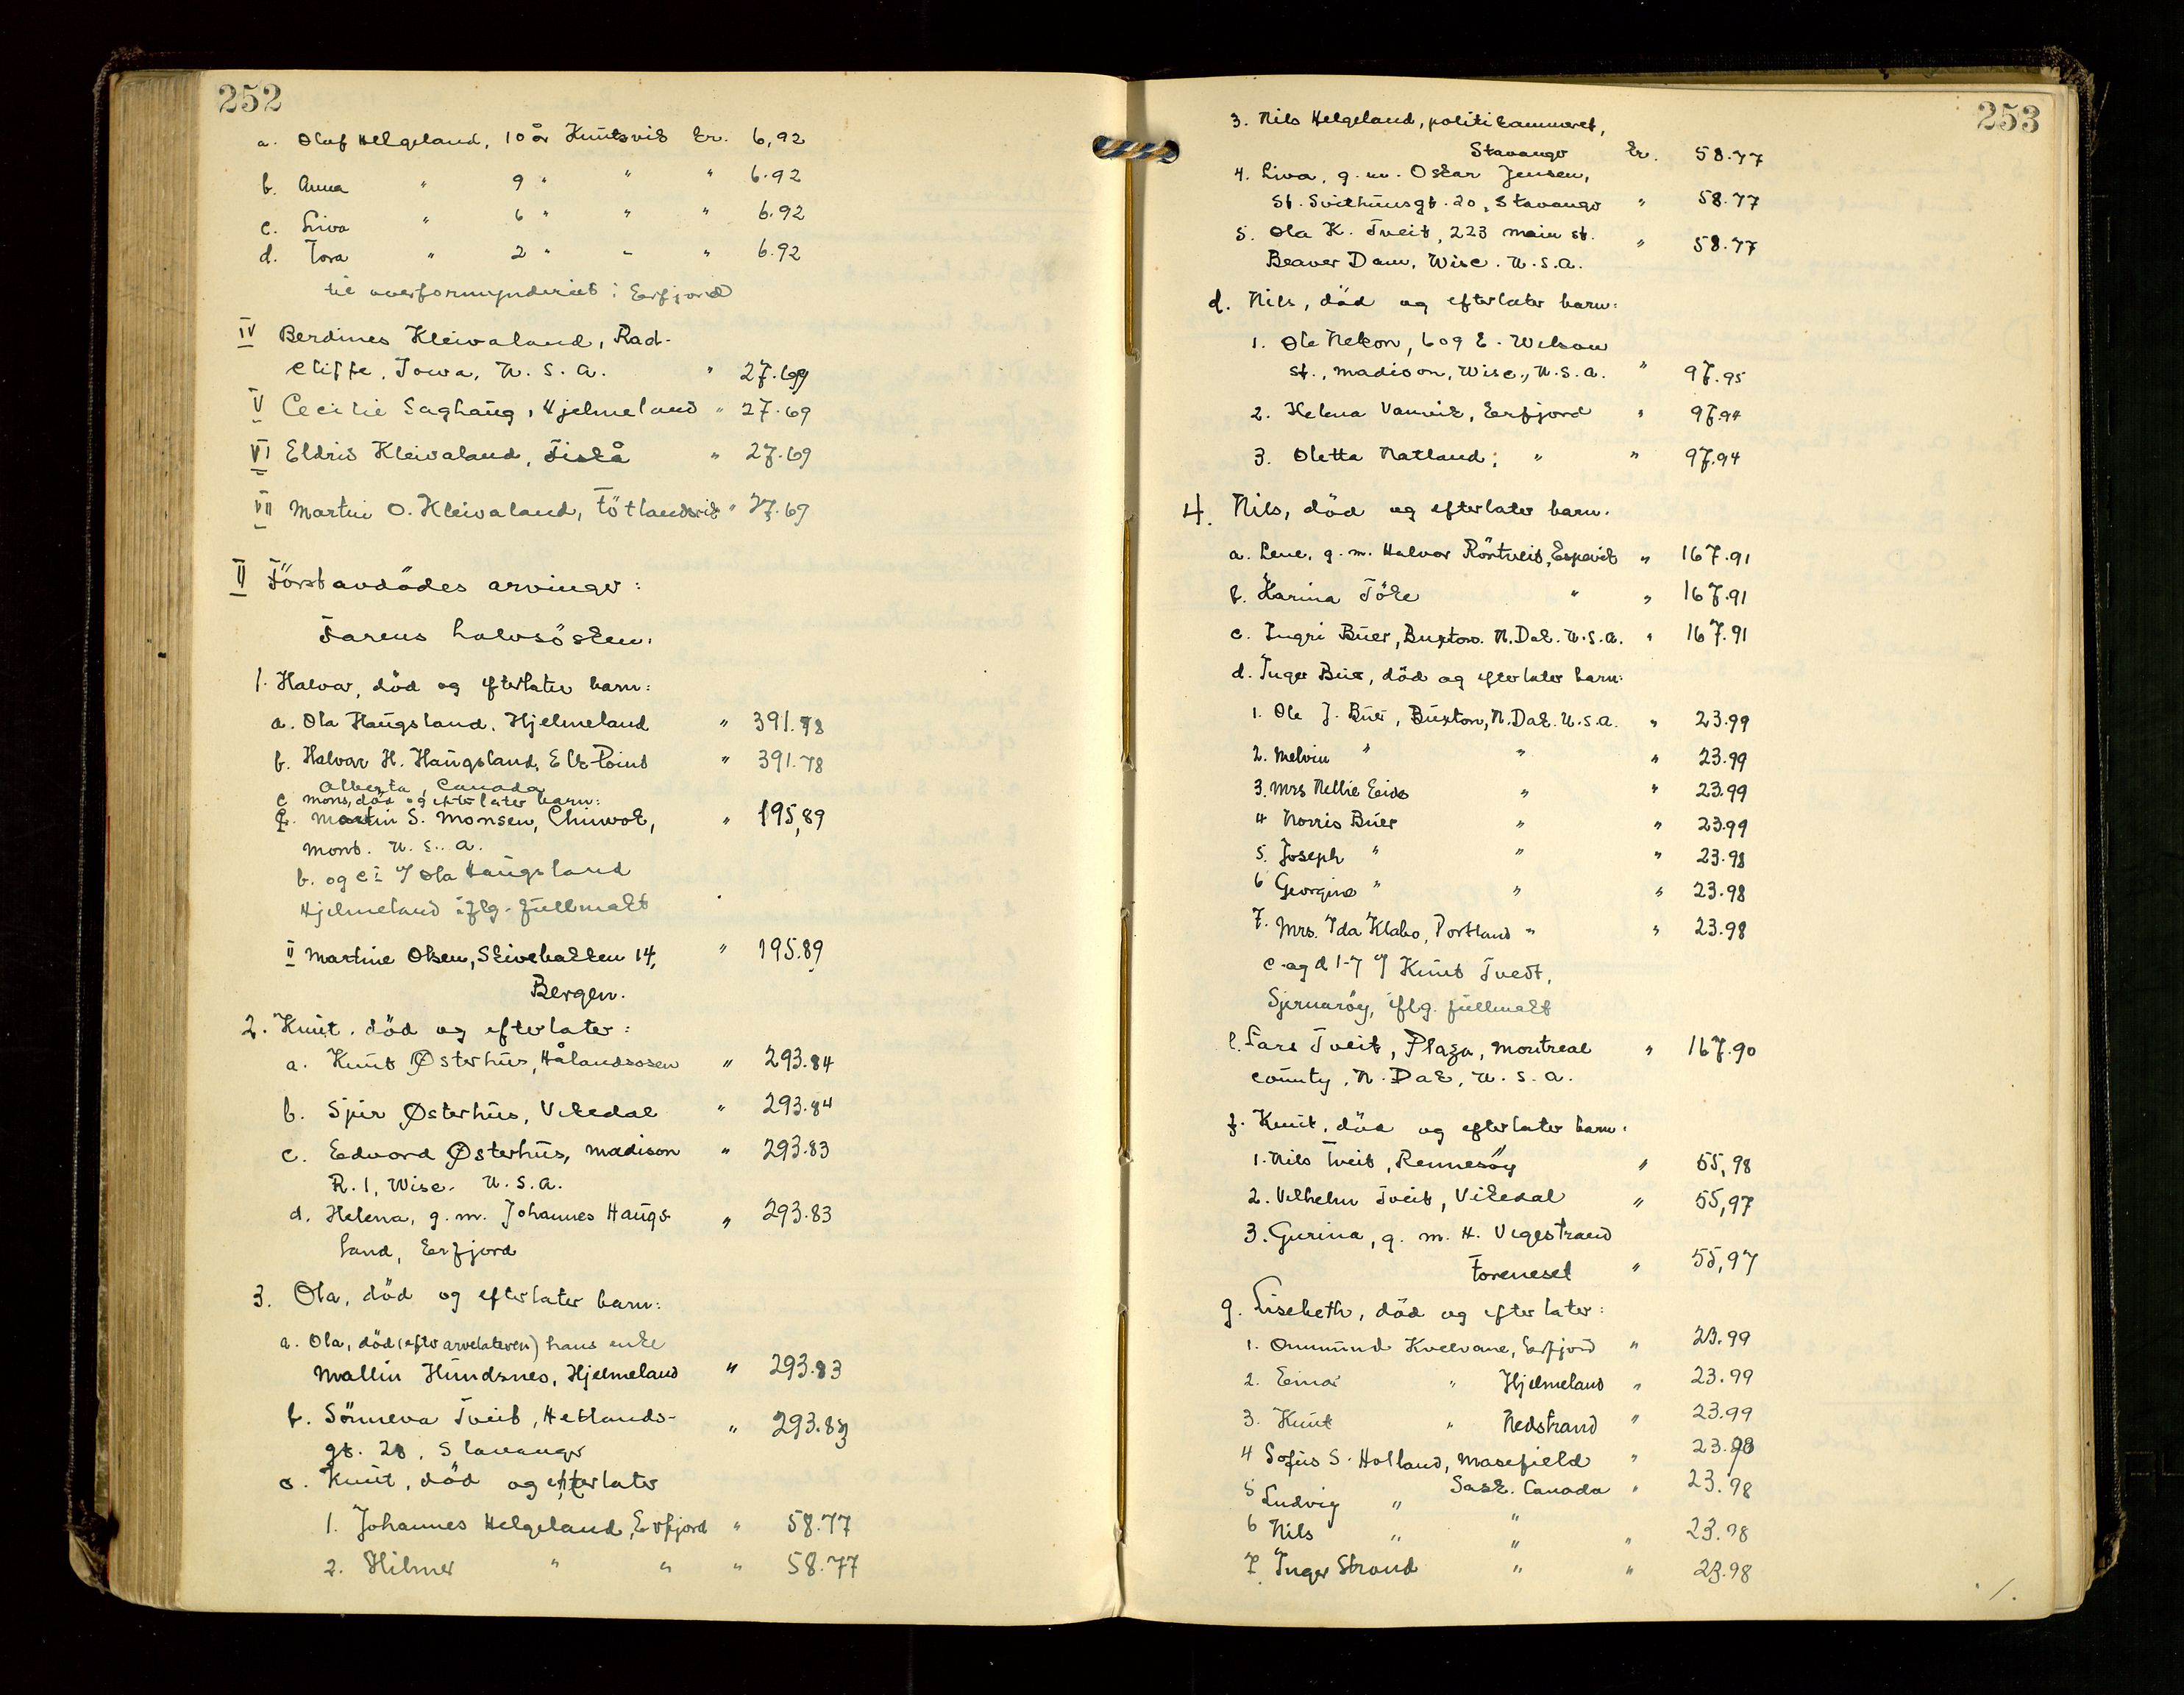 252
a. Olaf Helgeland, 10 år Knutsvik kr. 6,92
b. Anna " 9 " " " 6.92
c. Liva " 6 " " " 6.92
d. Tora " 2 " " " 6.92
til overformynderiet i Erfjord
IV Berdines Kleivaland, Rad-
cliffe, Iowa, U.S.A. " 27.69
V Cecilie Saghaug, Hjelmeland " 27.69
VI Eldris Kleivaland, Tiskå " 27.69
VII Martin O. Kleivaland, Fötlandsvik " 27.69
II Förstavdödes arvinger:
Farens halvsösken:
1. Halvor, död og efterlater barn:
a. Ola Haugsland, Hjelmeland " 391.78
b. Halvor H. Haugsland, Elk Point " 391.78
Alberta, Canada
c Mons, död og efterlater barn:
I. Martin S. Monsen, Chinook, " 195,89
Mont. U.S.A.
b. og c I v/ Ola Haugsland
Hjelmeland iflg. fullmakt
II Martine Olsen, Skivebakken 14, " 195.89
Bergen.
2. Knut, död og efterlater:
a. Knut Østerhus, Hålandsosen " 293.84
b. Sjur Østerhus, Vikedal " 293.84
c. Edvard Østerhus, Madison " 293.83
R. 1, Wisc. U.S.A.
d. Helena, g.m. Johannes Haugs- " 293.83
land, Erfjord
3. Ola, död og efterlater barn:
a. Ola, död (efter arvelateren) hans enke
Mallin Hundsnes, Hjelmeland " 293.83
b. Sönneva Tveit, Hetlands- " 293.83
gt. 28, Stavanger
c. Knut, död og efterlater
1. Johannes Helgeland, Erfjord " 58.77
2. Hilmer " " " 58.77
253
3. Nils Helgeland, politikammeret,
Stavanger kr. 58.77
4. Liva, g.m. Oskar Jensen,
St. Svithunsgt. 20, Stavanger " 58.77
5. Ola K. Tveit, 223 Main st. " 58.77
Beaver Dam, Wisc. U.S.A.
d. Nils, död og efterlater barn:
1. Ole Nelson, 609 E. Wilson
st., Madison, Wisc., U.S.A. " 97.95
2. Helena Vanvik, Erfjord " 97.94
3. Oletta Natland, " " 97.94
4. Nils, död og efterlater barn:
a. Lene, g.m. Halvor Röntveit, Espevik " 167.91
b. Karina Töke " " 167.91
c. Ingri Buer, Buxton. N.Dak. U.S.A. " 167.91
d. Inger Buer, död og efterlater barn:
1. Ole J. Buer, Buxton, N.Dak. U.S.A. " 23.99
2. Melvin " " " 23.99
3. Mrs Nellie Eide " " 23.99
4 Norris Buer " " 23.99
5. Joseph " " " 23.98
6 Georgine " " " 23.98
7. Mrs. Ida Klabo, Portland " " 23.98
c. og d 1-7 v/ Knut Tvedt,
Sjernaröy, iflg. fullmakt
e. Lars Tveit, Plaza, Montreal " 167.90
county, N. Dak, U.S.A.
f. Knut, död og efterlater barn:
1. Nils Tveit, Rennesöy " 55,98
2. Vilhelm Tveit, Vikedal " 55,97
3. Gurina, g.m. H. Vegestrand
Toreneset " 55,97
g. Lisebeth, död og efterlater:
1. Ommund Kvelvane, Erfjord " 23.99
2. Einar " Hjelmeland " 23.99
3. Knut " Nedstrand " 23.99
4 Sofus S. Holland, Masefield " 23.98
5 Ludvig " Sask. Canada " 23.98
6 Nils " " " 23.98
7. Inger Strand " " 23.98
./.